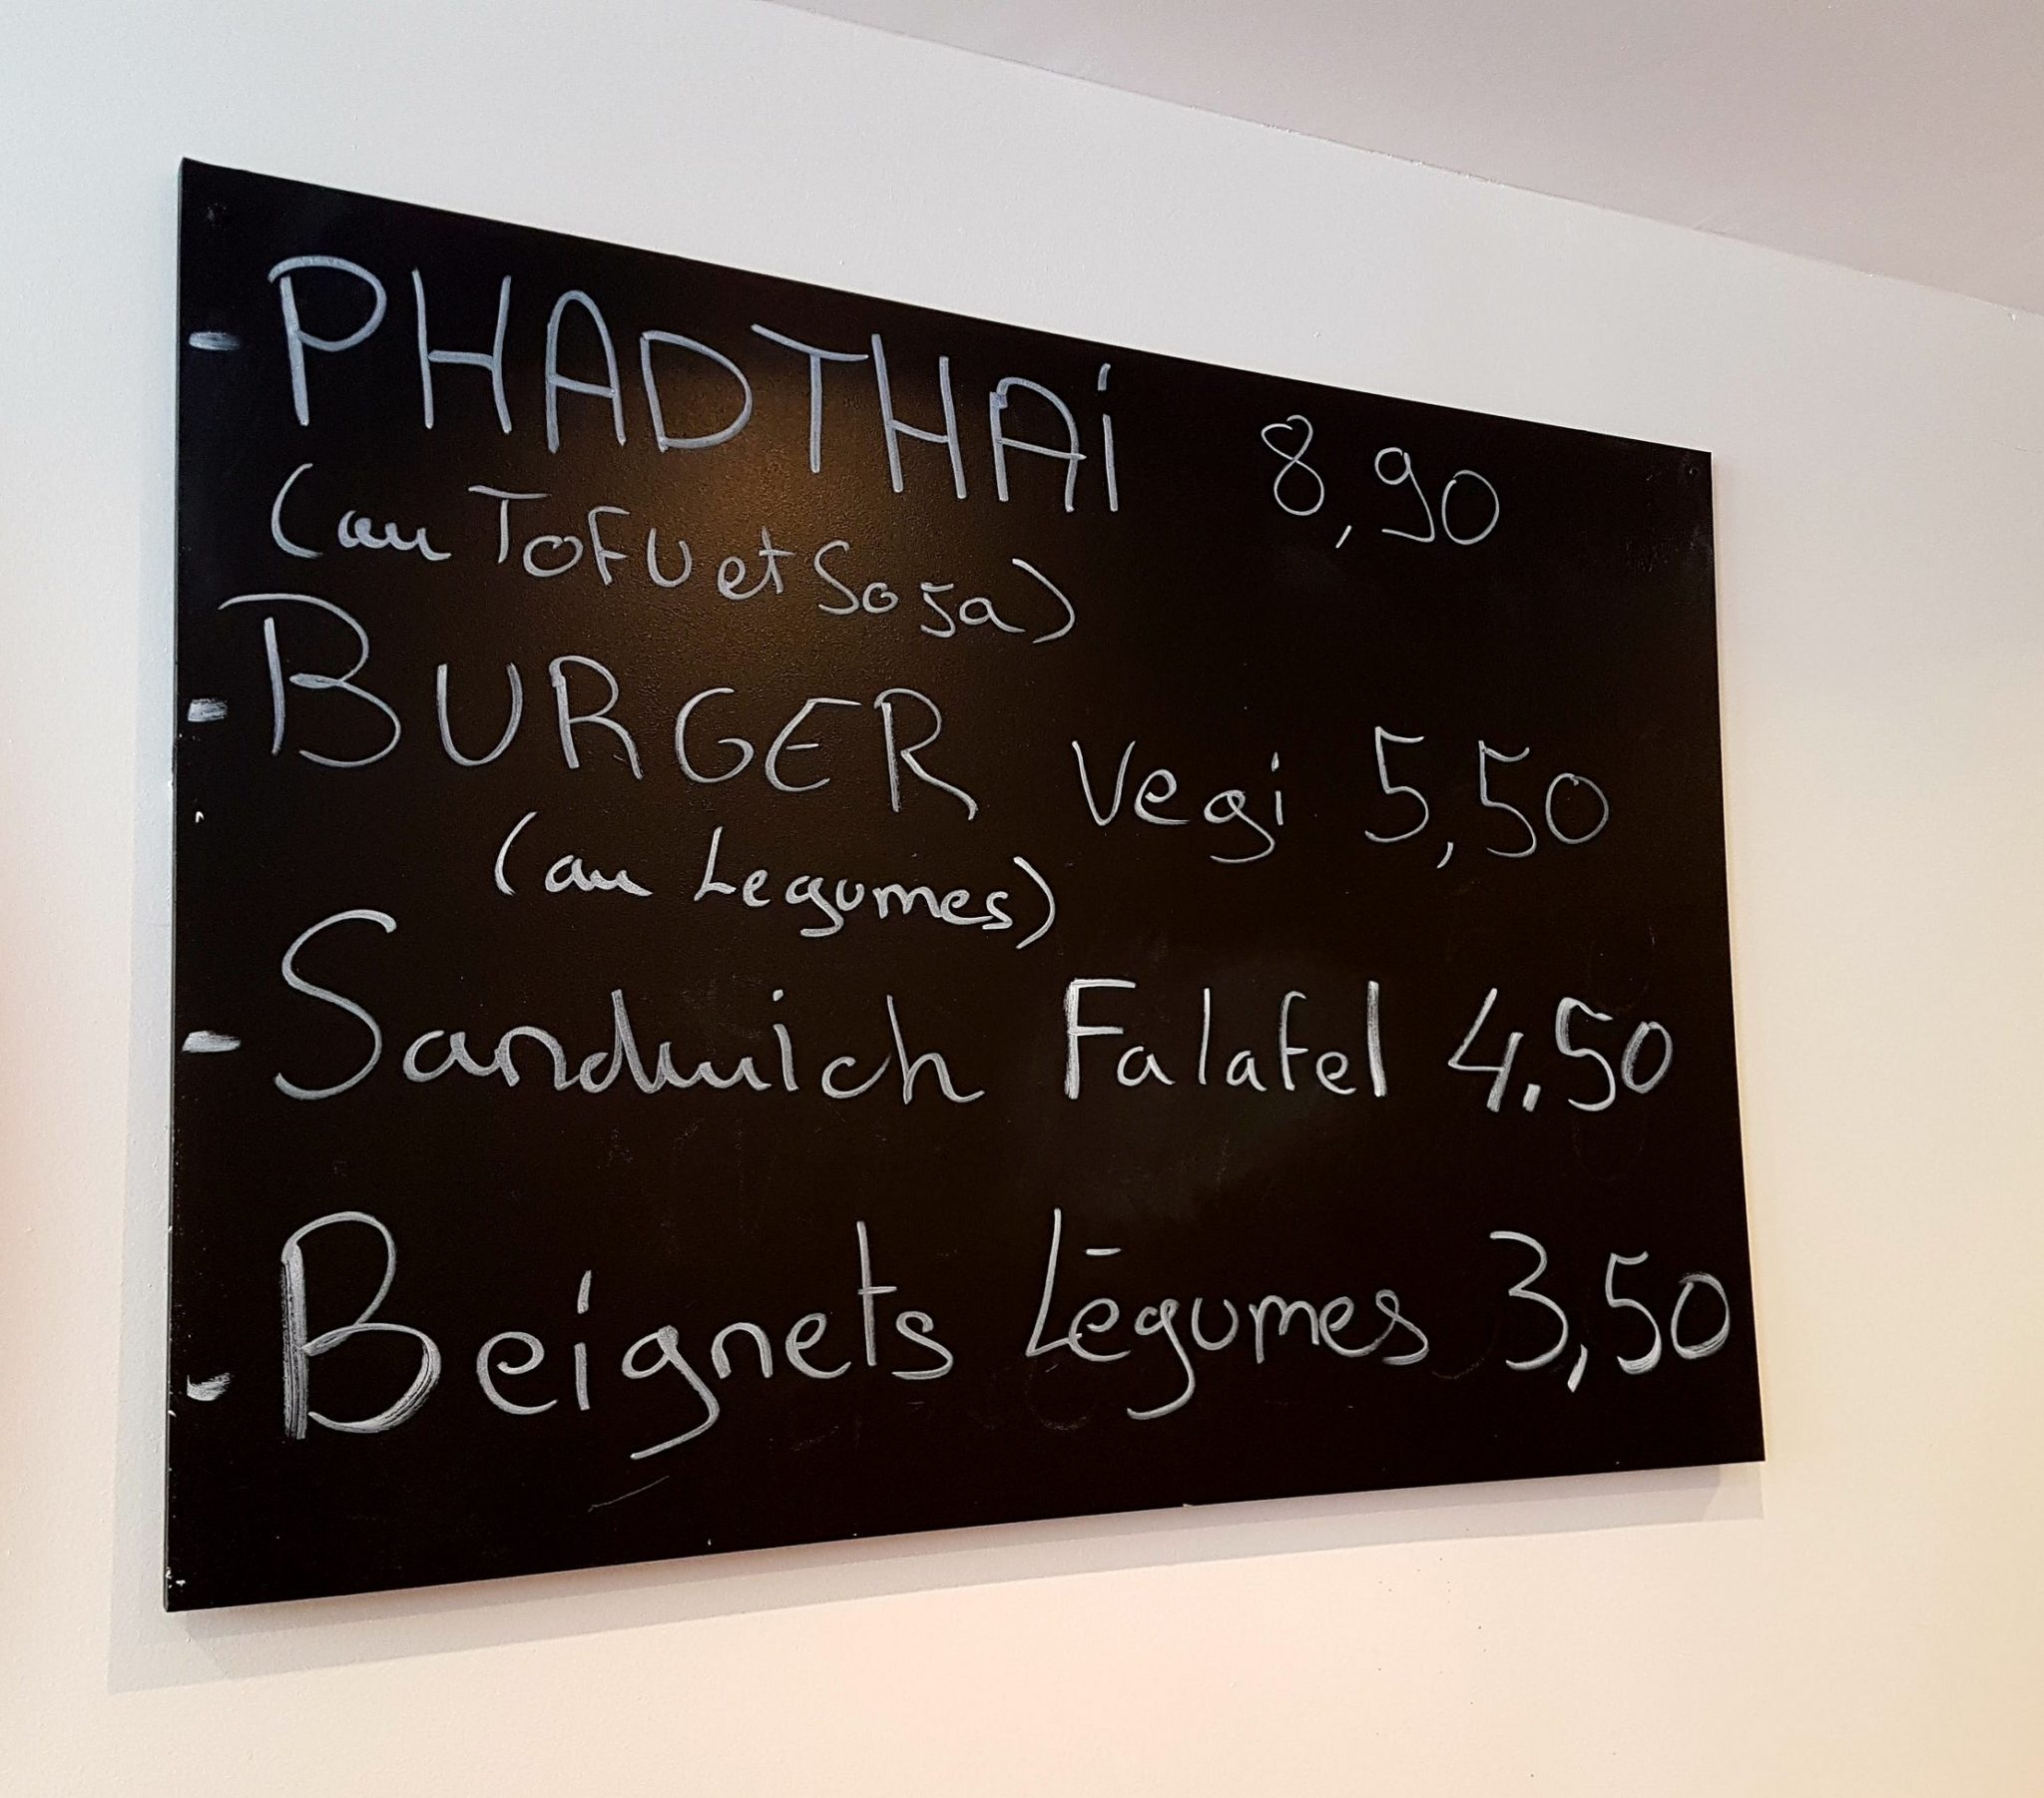 - PHADTHAi 8,90
(au TOFU et Soja)
- BURGER Vegi 5,50
(au Legumes)
- Sandwich Falafel 4,50
- Beignets Légumes 3,50